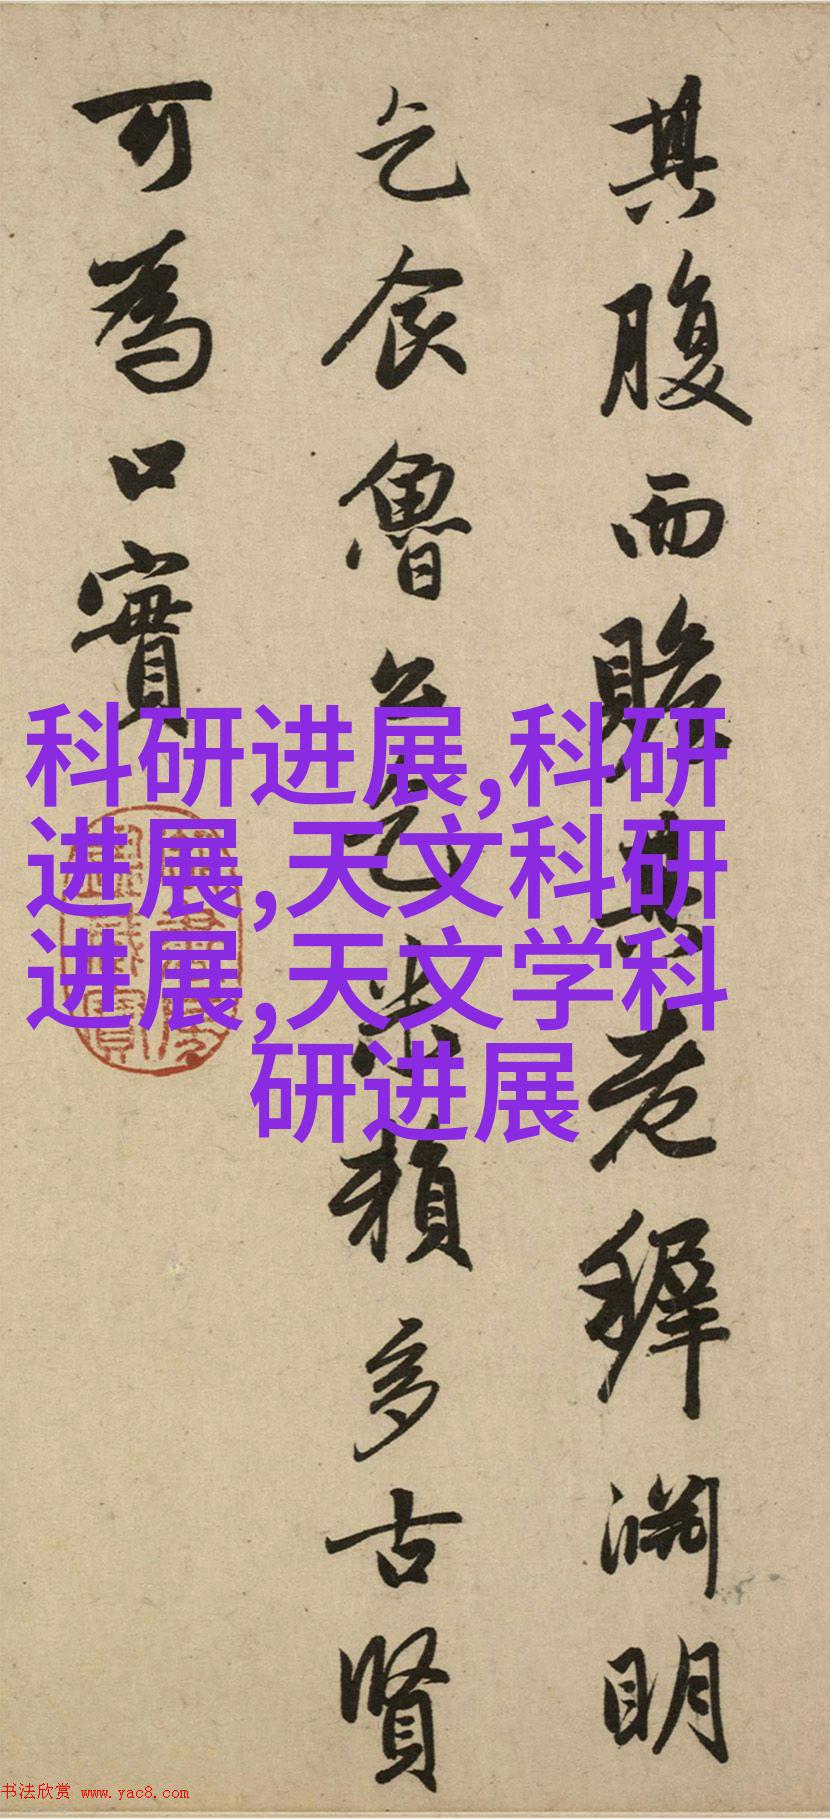 其腹而贍其老穉淵明
乞食魯公乞米賴多古賢
可為口實
科研进展,科研
进展,天文科研
进展,天文学科
研进展
书法欣赏 www.yac8.com